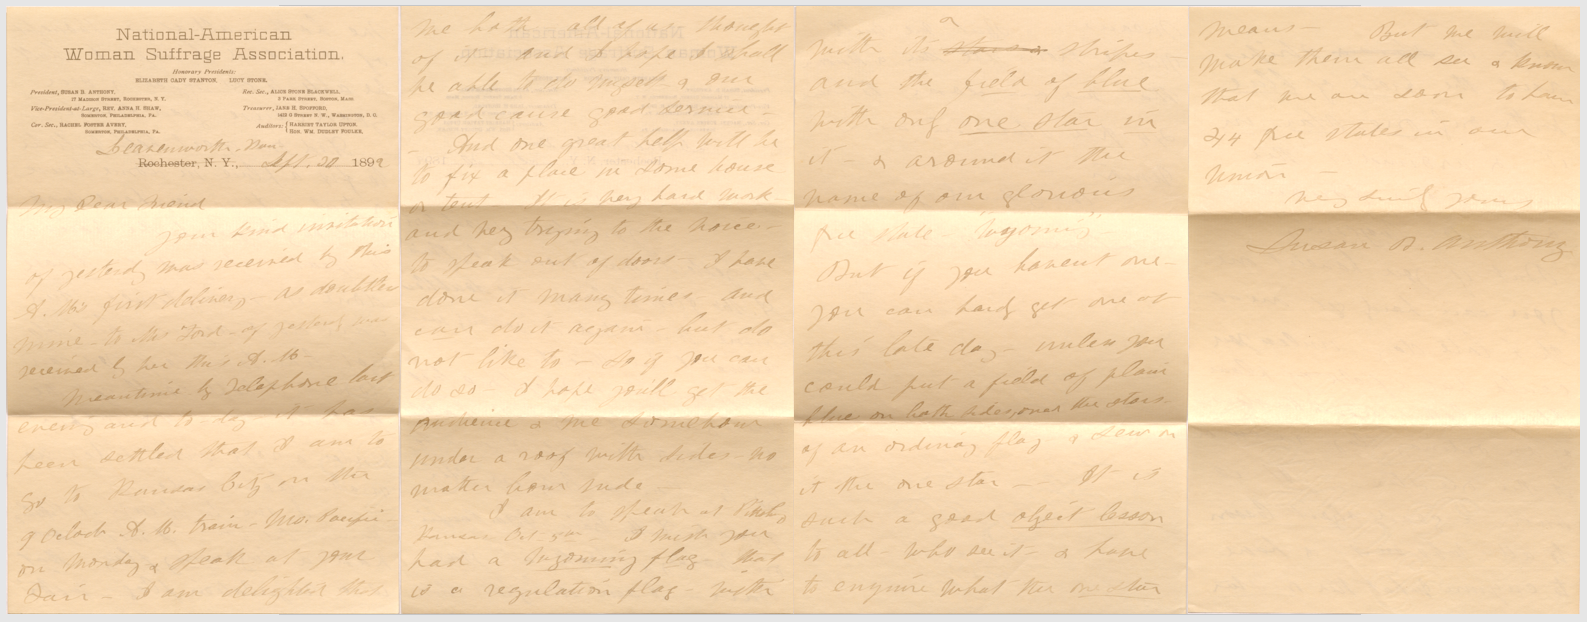 National-American
Woman Suffrage Association.
Honorary Presidents:
ELIZABETH CADY STANTON, LUCY STONE.
President, SUSAN B. ANTHONY,
17 MADISON STREET, ROCHESTER, N. Y.
Vice-President-at-Large, REV. ANNA H. SHAW,
SOMERTON, PHILADELPHIA, PA.
Cor. Sec., RACHEL FOSTER AVERY,
SOMERTON, PHILADELPHIA, PA.
Rec. Sec., ALICE STONE BLACKWELL,
3 PARK STREET, BOSTON, MASS
Treasurer, JANE H. SPOFFORD,
1412 G STREET N. W., WASHINGTON, D. C.
Auditors: HARRIET TAYLOR UPTON,
HON. WM. DUDLEY FOULKE,
Leavenworth
Rochester, N. Y., Sept. 20 1892
My Dear Friend
Your kind invitation
of yesterday was received by this
A.M's first delivery - as doubtless
mine - to Mrs Ford - of yesterday was
received by her this A.M. -
Meantime by Telephone last
evening and to-day it has
been settled that I am to
go to Kansas City on the
9 Oclock A. M. train - Mo. Pacific -
on Monday & speak at your
Fair - I am delighted that
we both all of us thought
of it - and I hope I shall
be able to do myself & our
good cause good service -
- And one great help will be
to fix a place in some house
or tent - It is very hard work -
and very trying to the voice -
to speak out of doors - I have
done it many times - and
can do it again - but do
not like to - So if you can
do so - I hope you'll get the
audience & me somehow
under a roof with sides - no
matter how rude -
I am to speak at
Kansas - I wish you
had a Wyoming flag - that
is a regulation flag - with
a
with its stripes
and the field of blue
with only one star in
it & around it the
name of our glorious
free state - "Wyoming" -
But if you havent one -
you can hardly get one at
this late day - unless you
could put a field of plain
blue on both sides, over the stars
of an ordinary flag & sew on
it the one star - It is
such a good object lesson
to all - who see it - & have
to enquire what the one star
means - But we will
make them all see & know
that we are soon to have
44 free states in our
Union -
Very sincerely yours
Susan B. Anthony